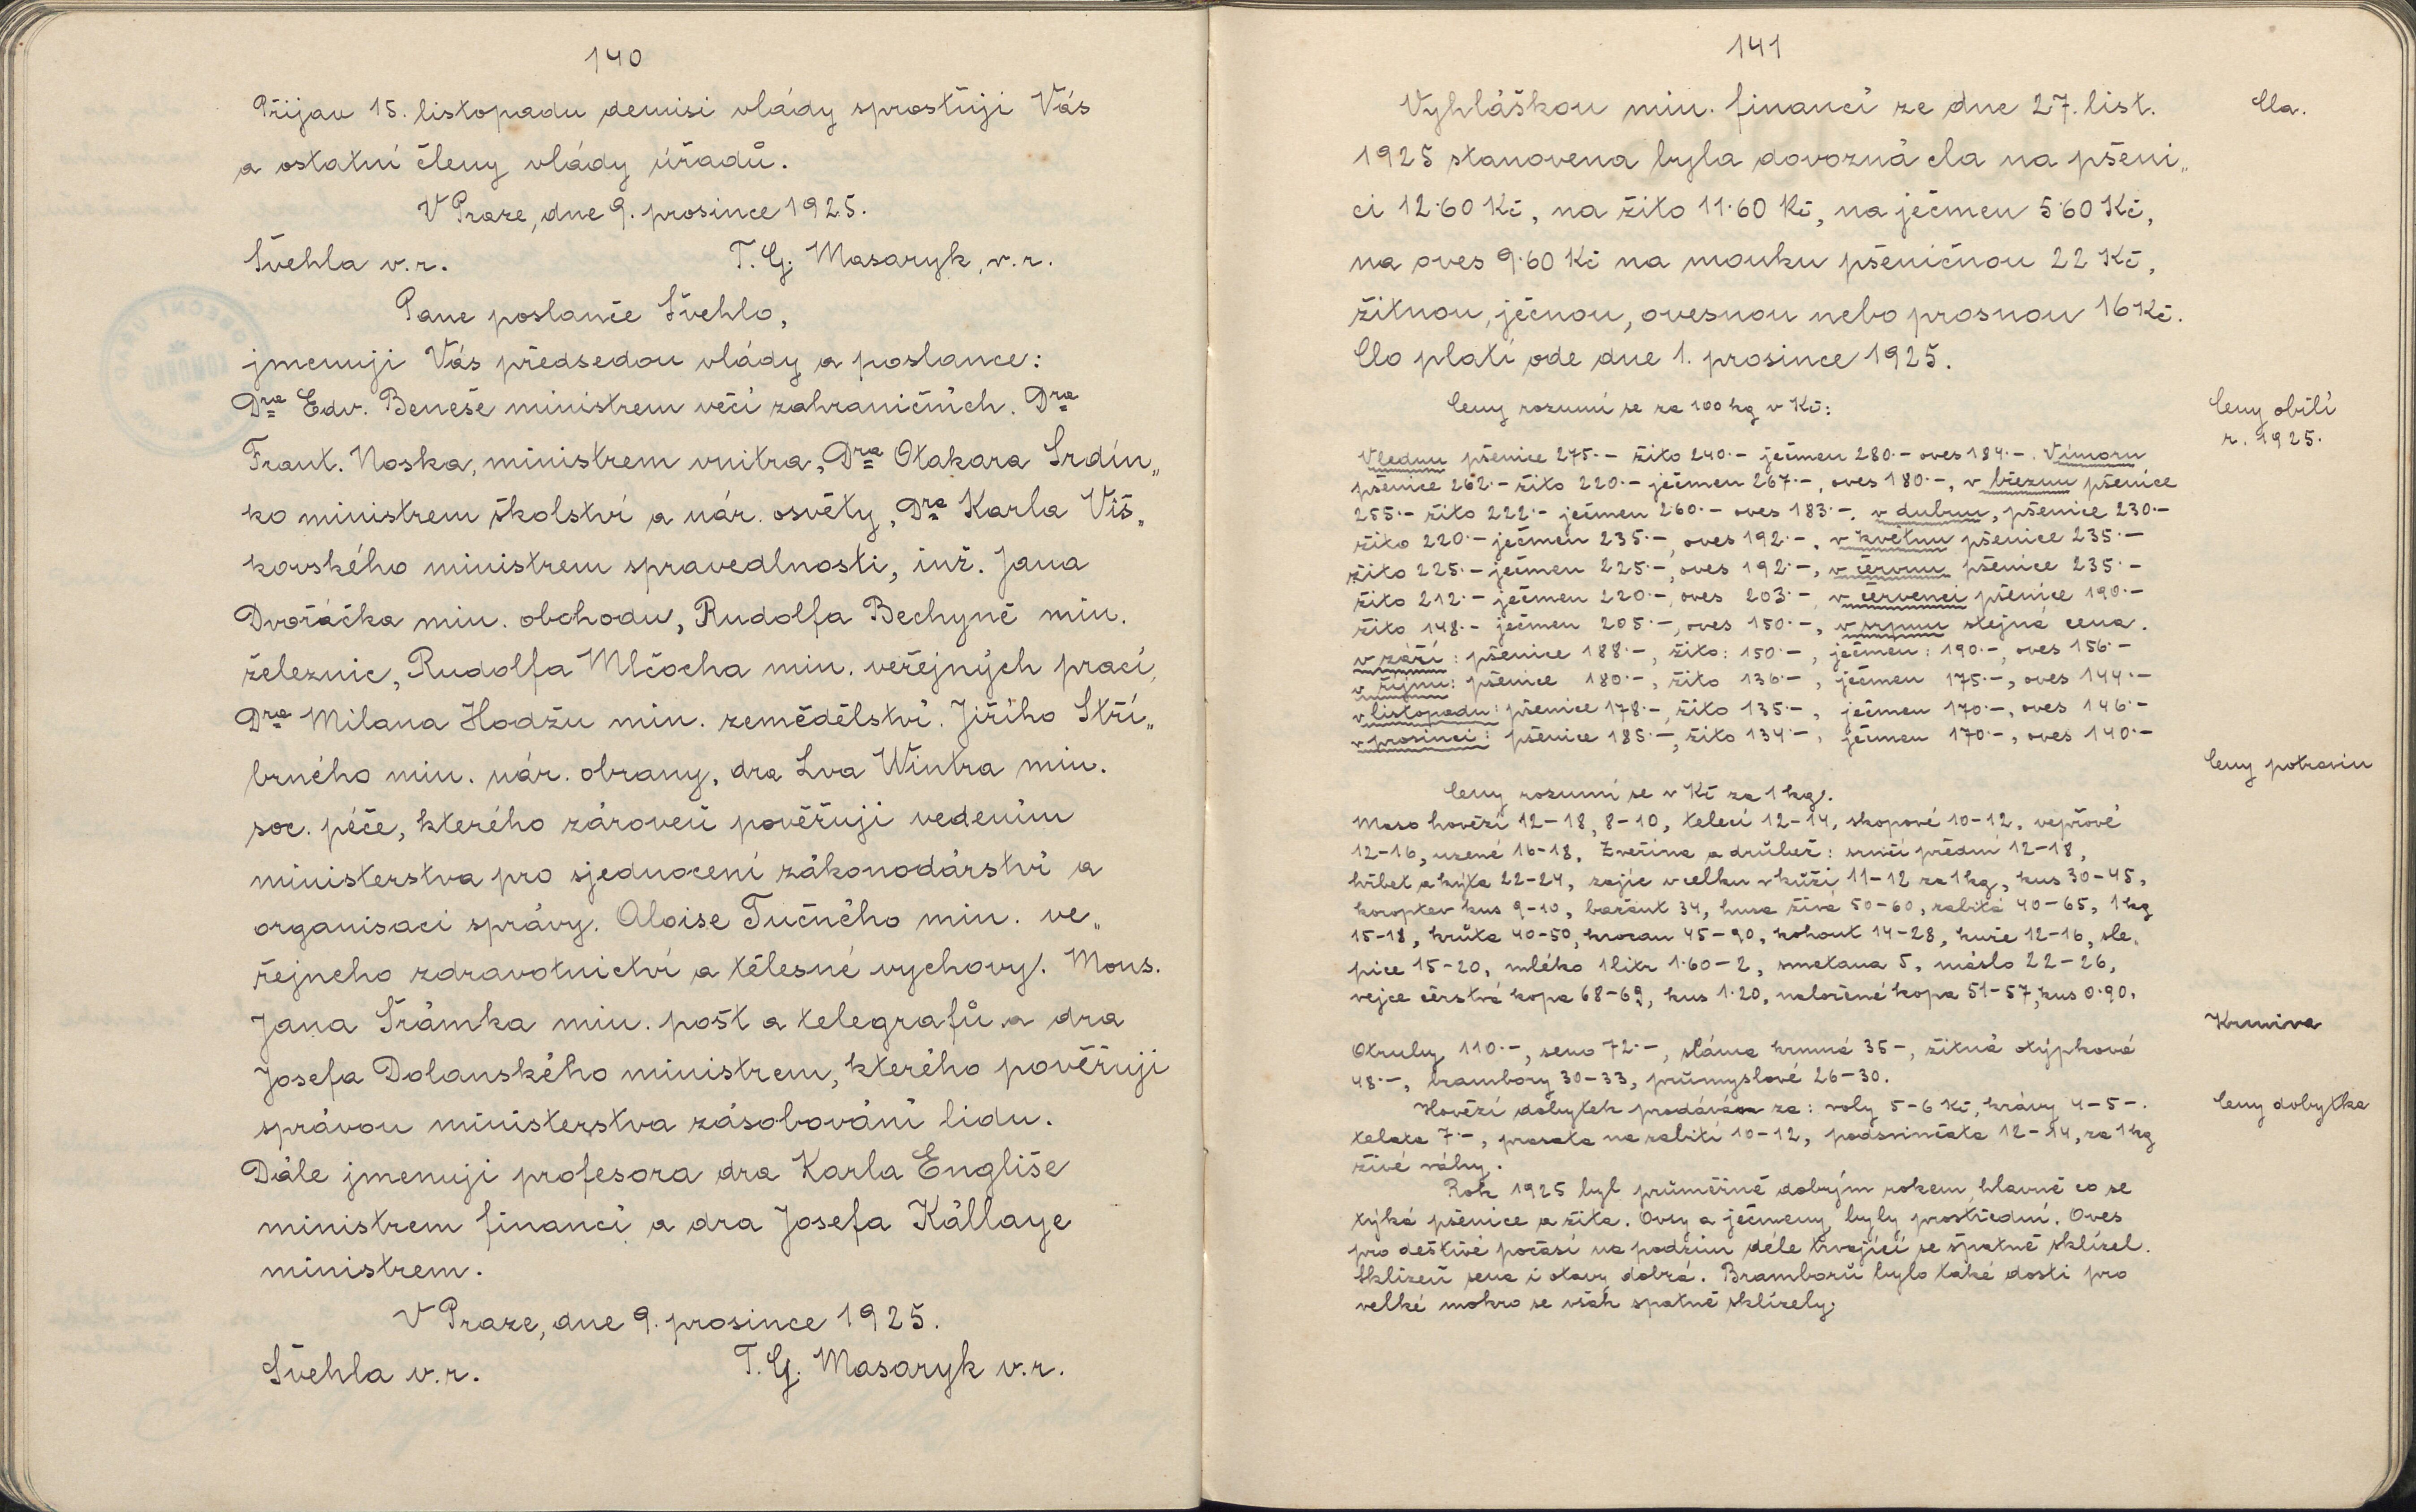 140
Přijav 15. listopadu demisi vlády sprostťuji Vás
a ostatní členy vlády úřadů.
V Praze, dne 9. prosince 1925.
Švehla v.r. T. G. Masaryk, v.r.
Pane poslanče Švehlo,
jmenuji Vás předsedou vlády a poslance:
Dra Edv. Beneše ministrem věcí zahraničních. Dra
Frant. Noska, ministrem vnitra, Dra Otakara Srdín„
ko ministrem školství a nár. osvěty, Dra Karla Viš„
kovského ministrem spravedlnosti, inž. Jana
Dvořáčka min. obchodu, Rudolfa Bechyně min.
železnic, Rudolfa Mlčocha min. veřejných prací,
Dra Milana Hodžu min. zemědělství. Jiřího Stří„
brného min. nár. obrany, dra Lva Wintra min.
soc. péče, kterého zároveň pověřuji vedením
ministerstva pro sjednocení zákonodárství a
organisaci správy. Aloise Tučného min. ve„
řejneho zdravotnictví a tělesné vychovy. Mons.
Jana Šrámka min. pošt a telegrafů a dra
Josefa Dolanského ministrem, kterého pověřuji
správou ministerstva zásobování lidu.
Dále jmenuji profesora dra Karla Engliše
ministrem financí a dra Josefa Kállaye
ministrem.
V Praze, dne 9. prosince 1925.
Švehla v.r. T. G. Masaryk v.r.
141
Vyhláškou min. financí ze dne 27. list.
Cla.
1925 stanovena byla dovozná cla na pšeni„
ci 12·60 Kč, na žito 11·60 Kč, na ječmen 5·60 Kč,
na oves 9·60 Kč na mouku pšeničnou 22 Kč,
žitnou, ječnou, ovesnou nebo prosnou 16 Kč.
Clo platí ode dne 1. prosince 1925.
Ceny rozumí se za 100 kg v Kč:
Ceny obilí
r. 1925.
V lednu pšenice 275·– žito 240·– ječmen 280·– oves 184·–. V únoru
pšenice 262·– žito 220·– ječmen 267·–, oves 180·–, v březnu pšenice
255·– žito 222·– ječmen 260·– oves 183·–. v dubnu, pšenice 230·–
žito 220·– ječmen 235·–, oves 192·–, v květnu pšenice 235·–
žito 225·– ječmen 225·–, oves 192·–, v červnu pšenice 235·–
žito 212·– ječmen 220·–, oves 203·–, v červenci pšenice 190·–
žito 148·– ječmen 205·–, oves 150·–, v srpnu stejná cena.
v září: pšenice 188·–, žito: 150·–, ječmen: 190·–, oves 156·–
v říjnu: pšenice 180·–, žito 136·–, ječmen 175·–, oves 144·–
v listopadu: pšenice 178·–, žito 135·–, ječmen 170·–, oves 146·–
v prosinci: pšenice 185·–, žito 134·–, ječmen 170·–, oves 140·–
Ceny potravin
Ceny rozumí se v Kč za 1 kg.
Maso hovězí 12–18, 8–10, telecí 12–14, skopové 10–12, vepřové
12–16, uzené 16–18. Zvěřina a drůbež: srnčí přední 12–18,
hřbet a kýta 22–24, zajíc v celku v kůži 11–12 za 1 kg, kus 30–45,
koroptev kus 9–10, bažant 34, husa živá 50–60, zabitá 40–65, 1 kg
15–18, krůta 40–50, krocan 45–90, kohout 14–28, kuře 12–16, sle„
pice 15–20, mléko 1 litr 1·60–2, smetana 5, máslo 22–26,
vejce čerstvá kopa 68–69, kus 1·20, naložené kopa 51–57, kus 0·90.
Krmiva
Otruby 110·–, seno 72·–, sláma krmná 35–, žitná otýpková
48·–, brambory 30–33, průmyslové 26–30.
Hovězí dobytek prodáván za: voly 5–6 Kč, krávy 4–5–.
Ceny dobytka
telata 7·–, prasata na zabití 10–12, podsvinčata 12–14, za 1 kg
živé váhy.
Rok 1925 byl průměrně dobrým rokem, hlavně co se
týká pšenice a žita. Ovsy a ječmeny byly prostřední. Oves
pro deštivé počasí na podzim déle trvající se špatně sklízel.
Sklizeň sena i otavy dobrá. Bramborů bylo také dosti pro
velké mokro se však spatně sklízely.